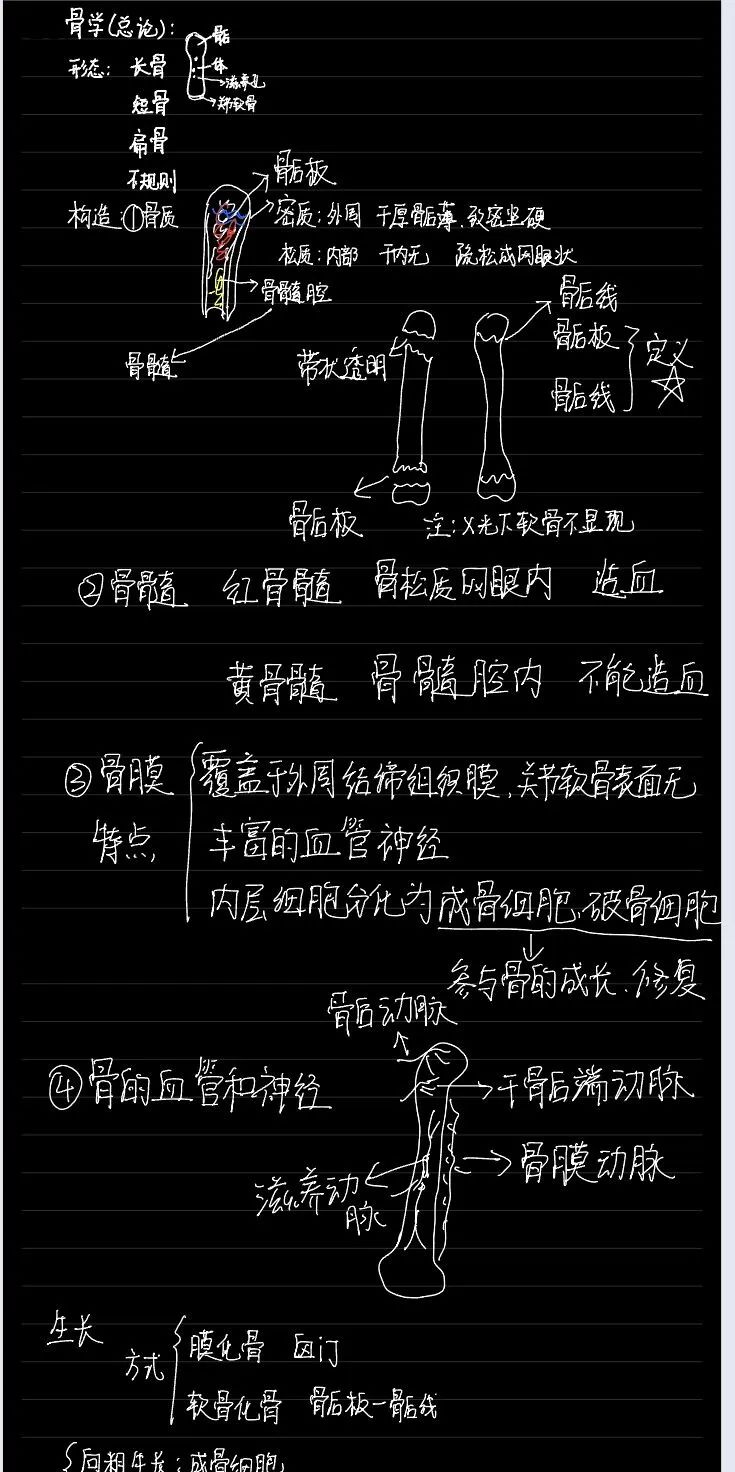 骨学(总论):
骺
形态: 长骨 体
滋养孔
关节软骨
短骨
扁骨
不规则
骨骺板
构造:①骨质 密质:外周 干厚骨骺薄,致密坚硬
松质:内部 干内无 疏松成网眼状
骨髓腔
骨髓
骨骺线
带状透明 骨骺板
骨骺线
定义
骨骺板
注:X光下软骨不显现
②骨髓 红骨髓 骨松质网眼内 造血
黄骨髓 骨髓腔内 不能造血
③骨膜 覆盖于外周结缔组织膜,关节软骨表面无
特点 丰富的血管神经
内层细胞分化为成骨细胞、破骨细胞
参与骨的成长、修复
骨骺动脉
④骨的血管和神经 干骨骺端动脉
骨膜动脉
滋养动脉
生长
方式 膜化骨 囟门
软骨化骨 骨骺板—骨骺线
向粗生长:成骨细胞